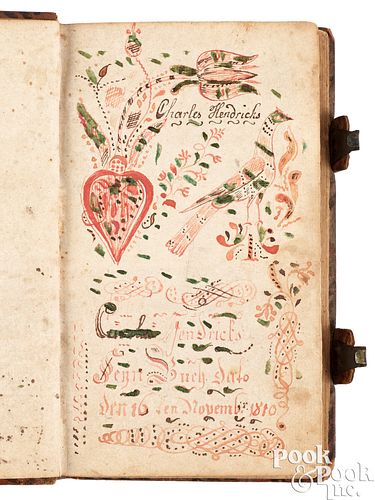 Charles Hendricks
Hendricks
Seyn Buch Dato
den 16 ten Novembr 1810
POOK
& POOK
Inc.